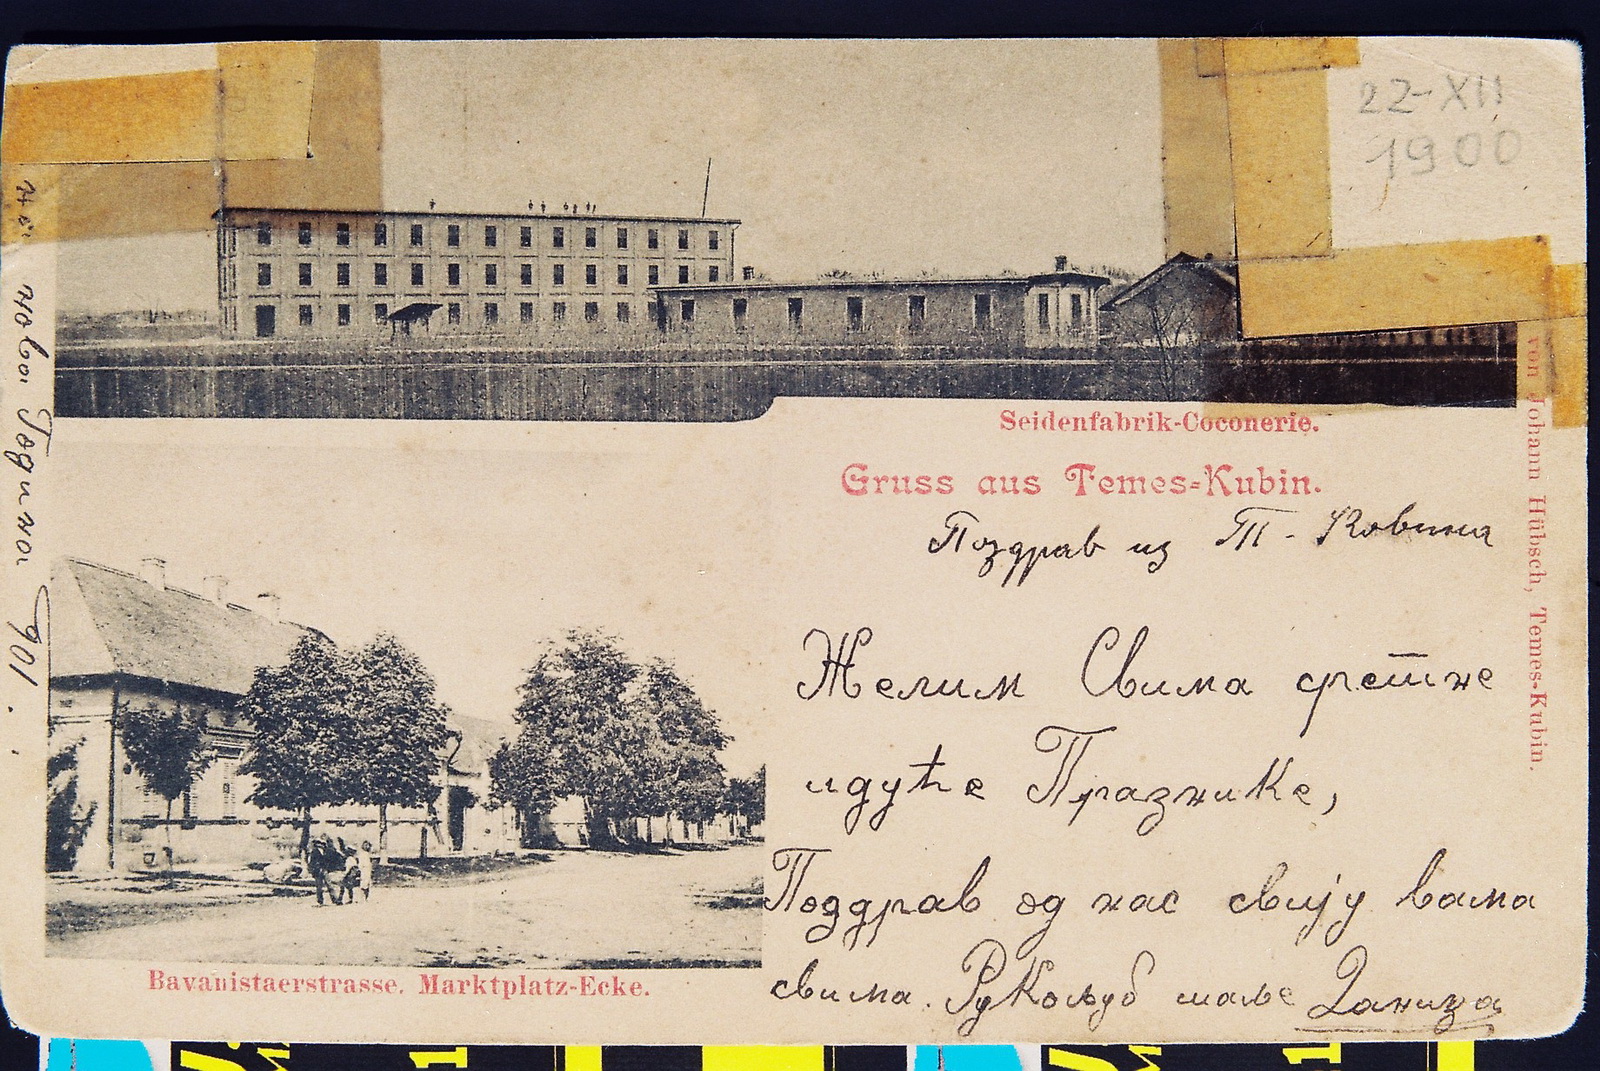 22-XII
1900
Seidenfabrik-Coconerie.
Gruss aus Temes-Kubin.
Поздрав из Т. Ковина
Желим Свима сретне
идуће Празнике,
Поздрав од нас свију вама
свима. Рукољуб шаље Даница
Bavanistaerstrasse. Marktplatz-Ecke.
von Johann Hübsch, Temes-Kubin.
нова Година 901.